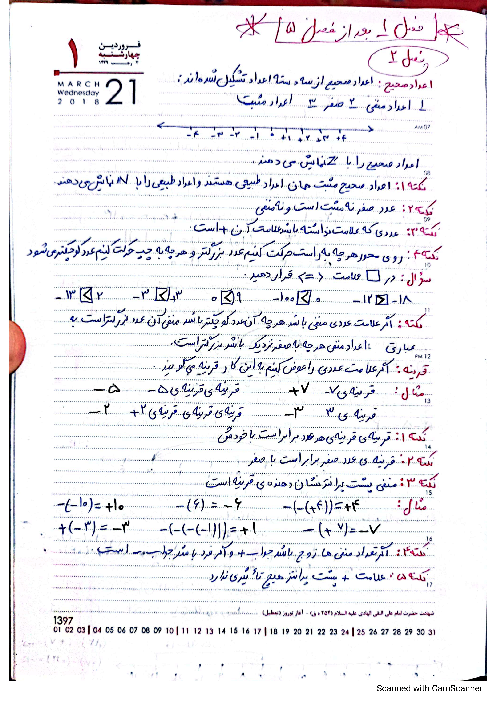 فصل ۱ بعد از فصل ۵
فصل ۲
۱ فروردین
چهارشنبه
MARCH
Wednesday
2018
21
اعداد صحیح: اعداد صحیح از سه دسته اعداد تشکیل شده اند:
۱ اعداد منفی ۲ صفر ۳ اعداد مثبت
-۴ -۳ -۲ -۱ ۰ +۱ +۲ +۳ +۴
اعداد صحیح را با Z نمایش می دهند.
نکته ۱: اعداد صحیح مثبت همان اعداد طبیعی هستند و اعداد طبیعی را با N نمایش می دهند.
نکته ۲: عدد صفر نه مثبت است و نه منفی
نکته ۳: عددی که علامت نداشته باشد علامت آن + است.
نکته ۴: روی محور هر چه به راست حرکت کنیم عدد بزرگتر و هر چه به چپ حرکت کنیم عدد کوچکتر می شود
سؤال: در □ علامت < = > قرار دهید.
-۱۳ < ۲ -۳ < ۰٫۳ ۰ < ۹ -۱۰۰ < ۰ -۱۲ > -۱۸
نکته: اگر علامت عددی منفی باشد هر چه آن عدد کوچکتر باشد منفی آن عدد بزرگتر است. به
عبارتی: اعداد منفی هر چه به صفر نزدیک باشد بزرگتر است.
قرینه: اگر علامت عددی را عوض کنیم به این کار قرینه می گویند.
مثال: قرینه ی -۷ +۷ قرینه ی قرینه ی -۵ -۵
قرینه ی ۳ -۳ قرینه ی قرینه ی قرینه ی +۲ -۲
نکته ۱: قرینه ی قرینه ی هر عدد برابر است با خودش
نکته ۲: قرینه ی عدد صفر برابر است با صفر
نکته ۳: منفی پشت پرانتز نشان دهنده ی قرینه است
مثال: -(-(+۴))=+۴ -(۶)=-۶ -(-۱۰)=+۱۰
-(+۷)=-۷ -(-(-(-۱)))=+۱ +(-۳)=-۳
نکته ۴: اگر تعداد منفی ها زوج باشد جواب + و اگر فرد باشد جواب - است.
نکته ۵: علامت + پشت پرانتز هیچ تأثیری ندارد
شهادت حضرت امام علی النقی الهادی علیه السلام (۲۵۴ ه ق) - آغاز نوروز (تعطیل)
1397
01 02 03 04 05 06 07 08 09 10 11 12 13 14 15 16 17 18 19 20 21 22 23 24 25 26 27 28 29 30 31
Scanned with CamScanner